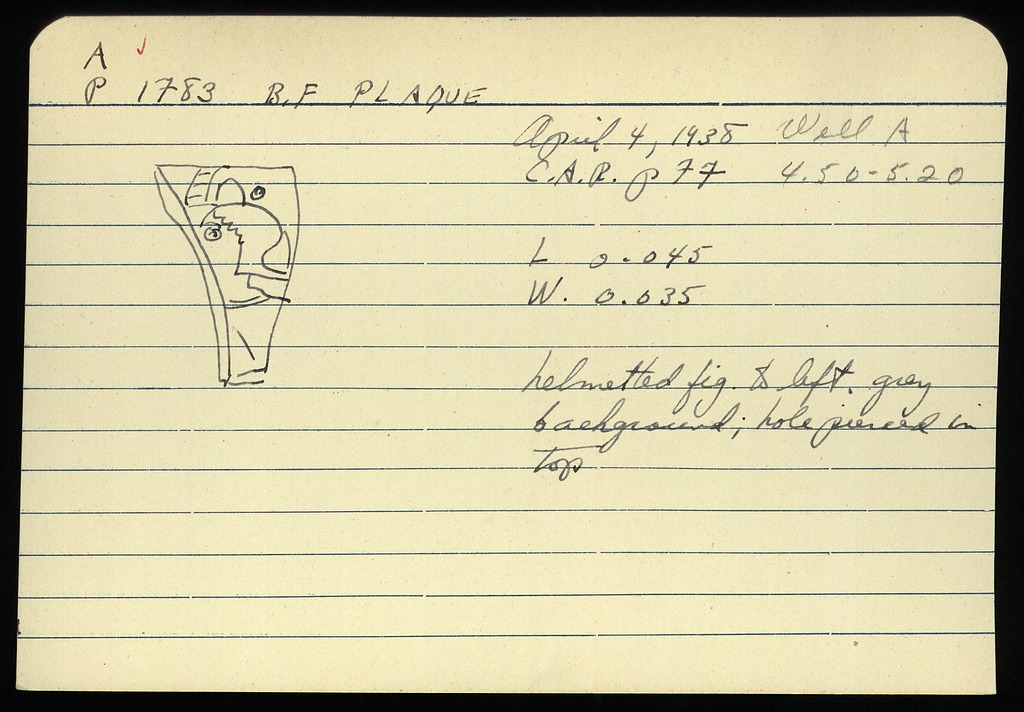 A
P 1783 B.F PLAQUE
April 4, 1938 Well A
C.A.R. p 77 4.50-5.20
L 0.045
W. 0.035
helmetted fig. to left. grey
background; hole pierced in
top